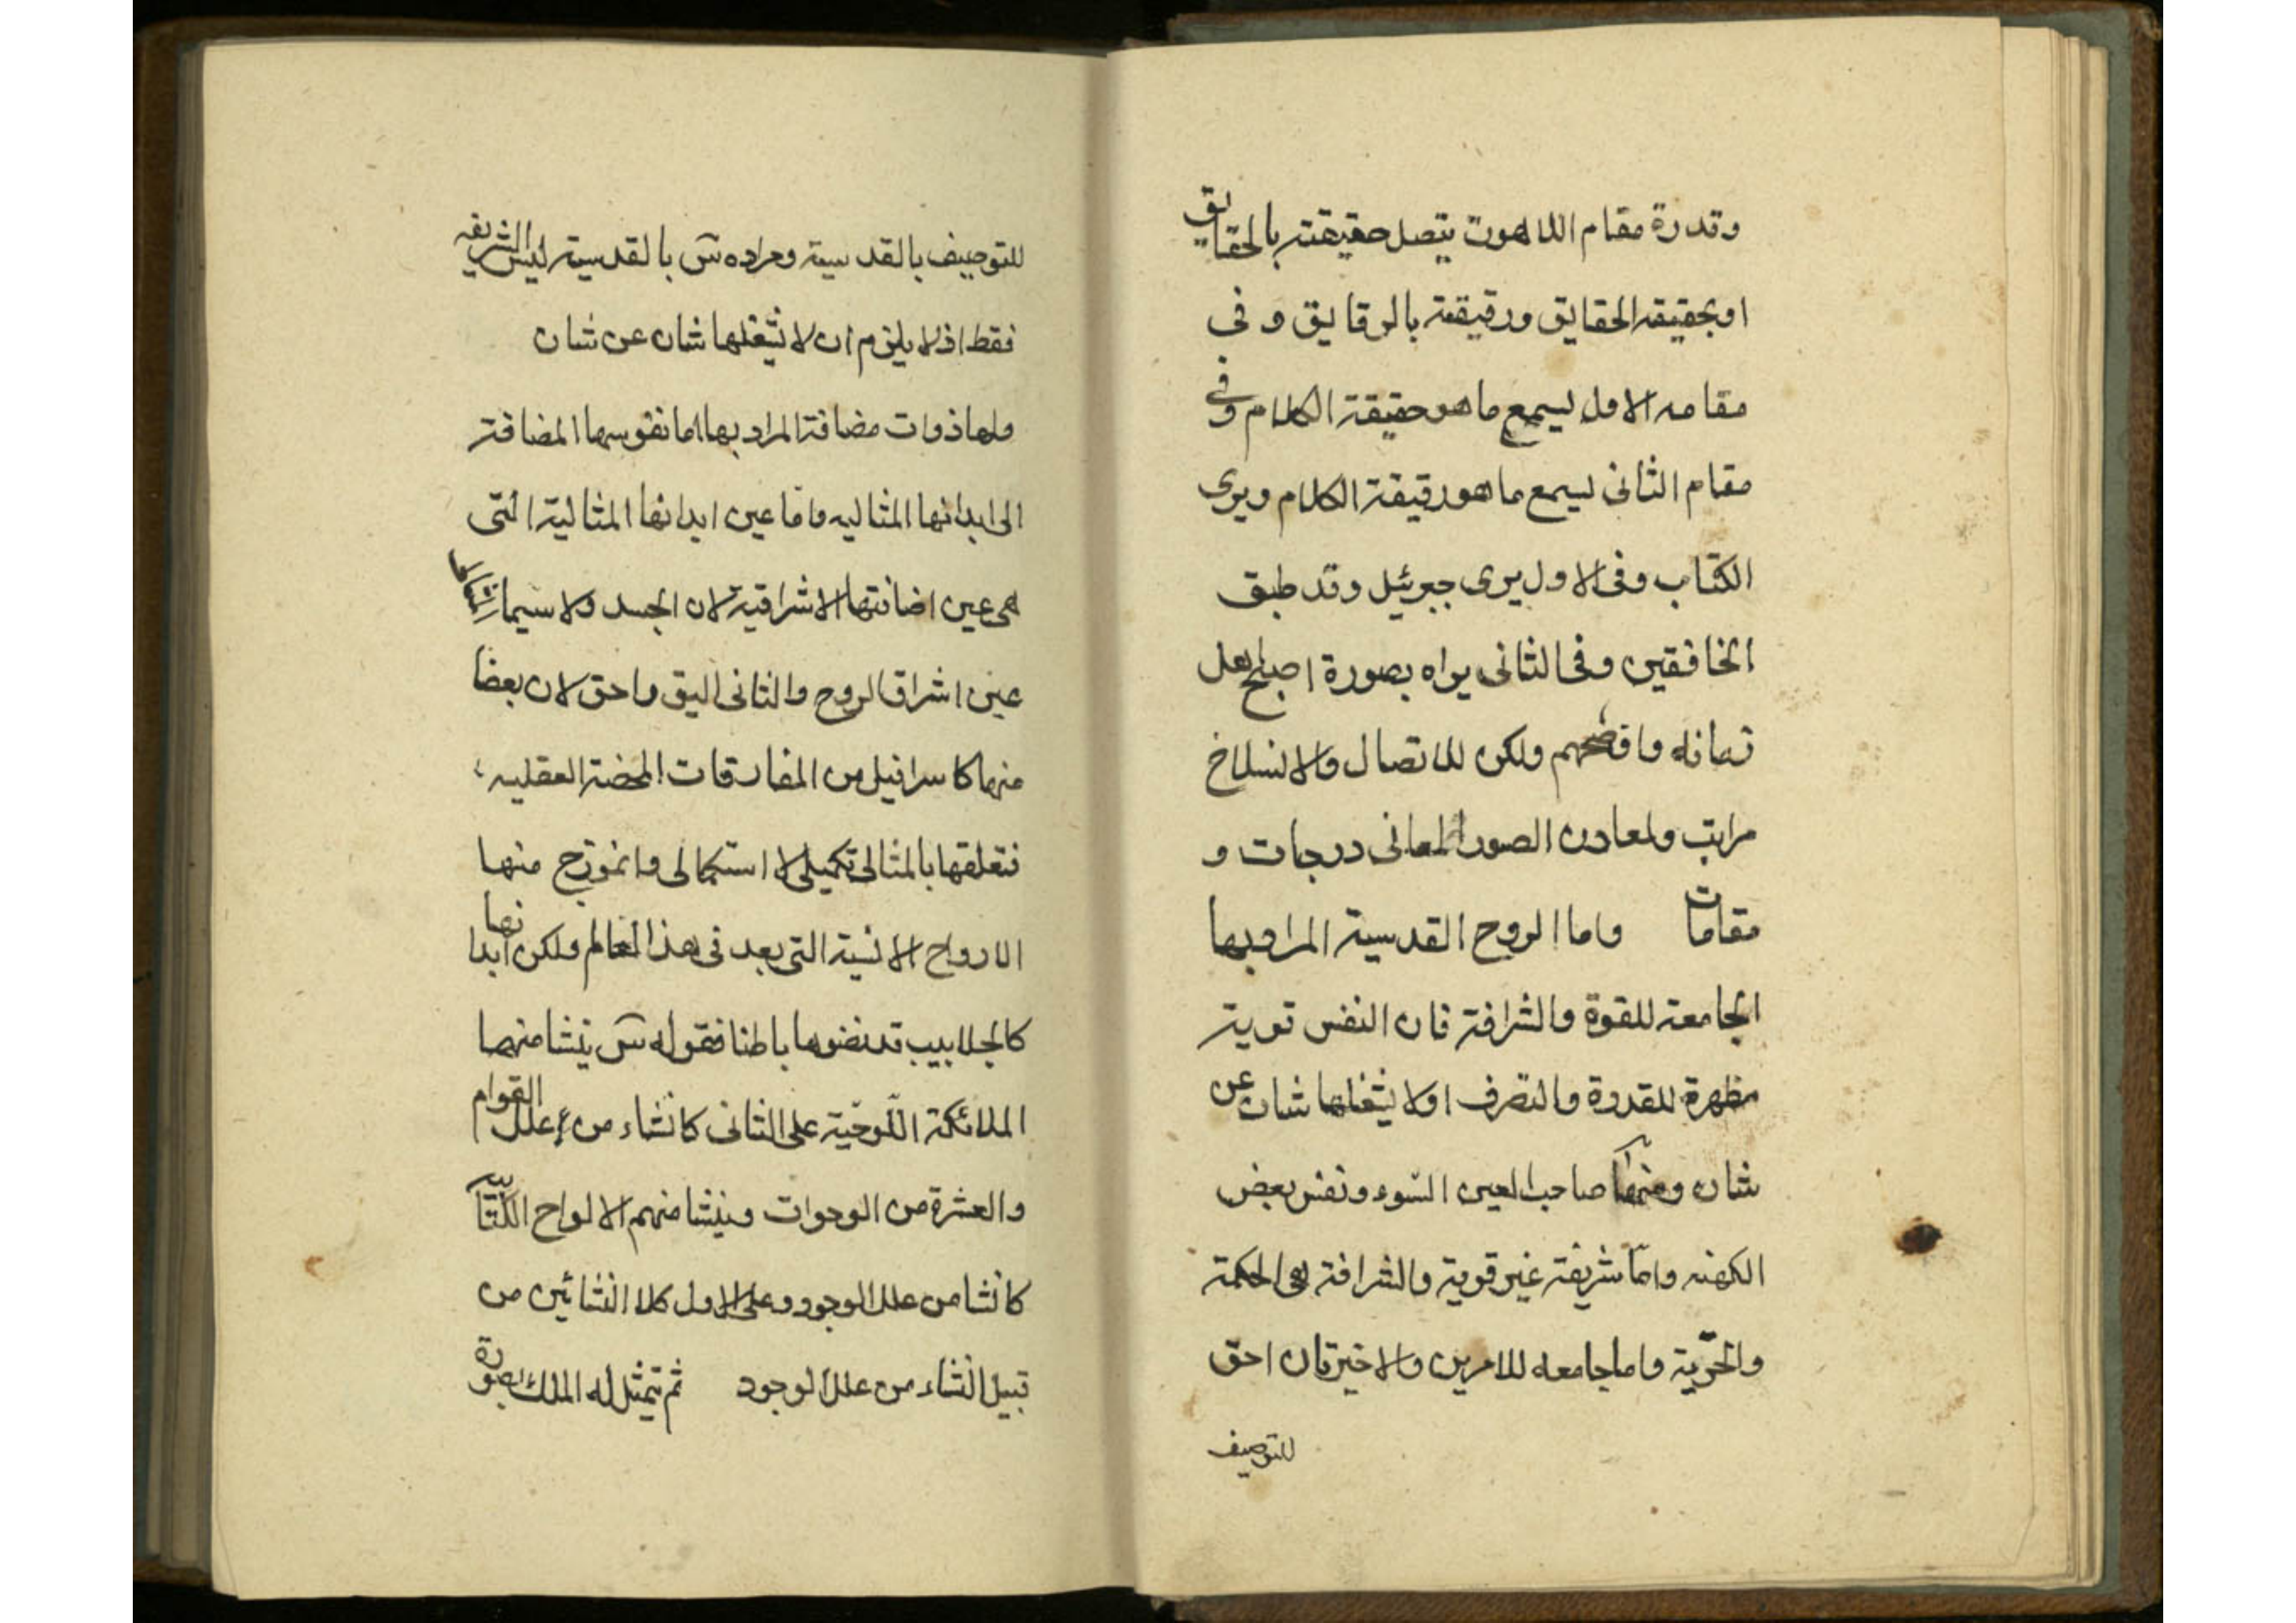 وقدرة مقام اللاهوت يتصل حقيقته بالحقايق
او بحقيقة الحقايق ورقيقته بالرقايق و فى
مقامه الاول يسمع ما هو حقيقة الكلام وفى
مقام الثانى يسمع ما هو رقيقة الكلام ويرى
الكتاب وفى الاول يرى جبرئيل وقد طبق
الخافقين وفى الثانى يراه بصورة اصبح اهل
زمانه وافصحهم ولكن للاتصال والانسلاخ
مراتب ولمعادن الصور المعانى درجات و
مقامات واما الروح القدسية المراد بها
الجامعة للقوة والشرافة فان النفس قوية
مظهرة للقدرة والتصرف اولا يشغلها شان عن
شان ومنها صاحب العين السّوء ونفس بعض
الكهنه وامّا شريفة غير قوية والشرافة هى الحكمة
والحرّية واما جامعه للامرين والاخيرتان احق
للتوصيف
للتوصيف بالقدسية ومراده سّ بالقدسية ليس الشريفه
فقط اذ لا يلزم ان لا يشغلها شان عن شان
ولها ذوات مضافة المراد بها اما نفوسها المضافة
الى ابدانها المثاليه واما عين ابدانها المثالية التى
هى عين اضافتها الاشراقية لان الجسد ولا سيما
عين اشراق الروح والثانى اليق واحق لان بعضا
منها كاسرافيل من المفارقات المحضة العقليه
فتعلقها بالمثالى تكميلى لا استكمالى وانموزج منها
الارواح الانسية التى بعد فى هذا العالم ولكن ابدانها
كالجلابيب قد نضوها باطنا فقوله سّ ينشا منها
الملائكة اللّوحيّة على الثانى كانشاء من علل القوام
والعشرة من الوحوات وينشا منهم الالواح الكتابيه
كانشا من علل الوجود وعلى الاول كلا النشائين من
قبيل انشاء من علل الوجود ثم يتمثل له الملك بصورة